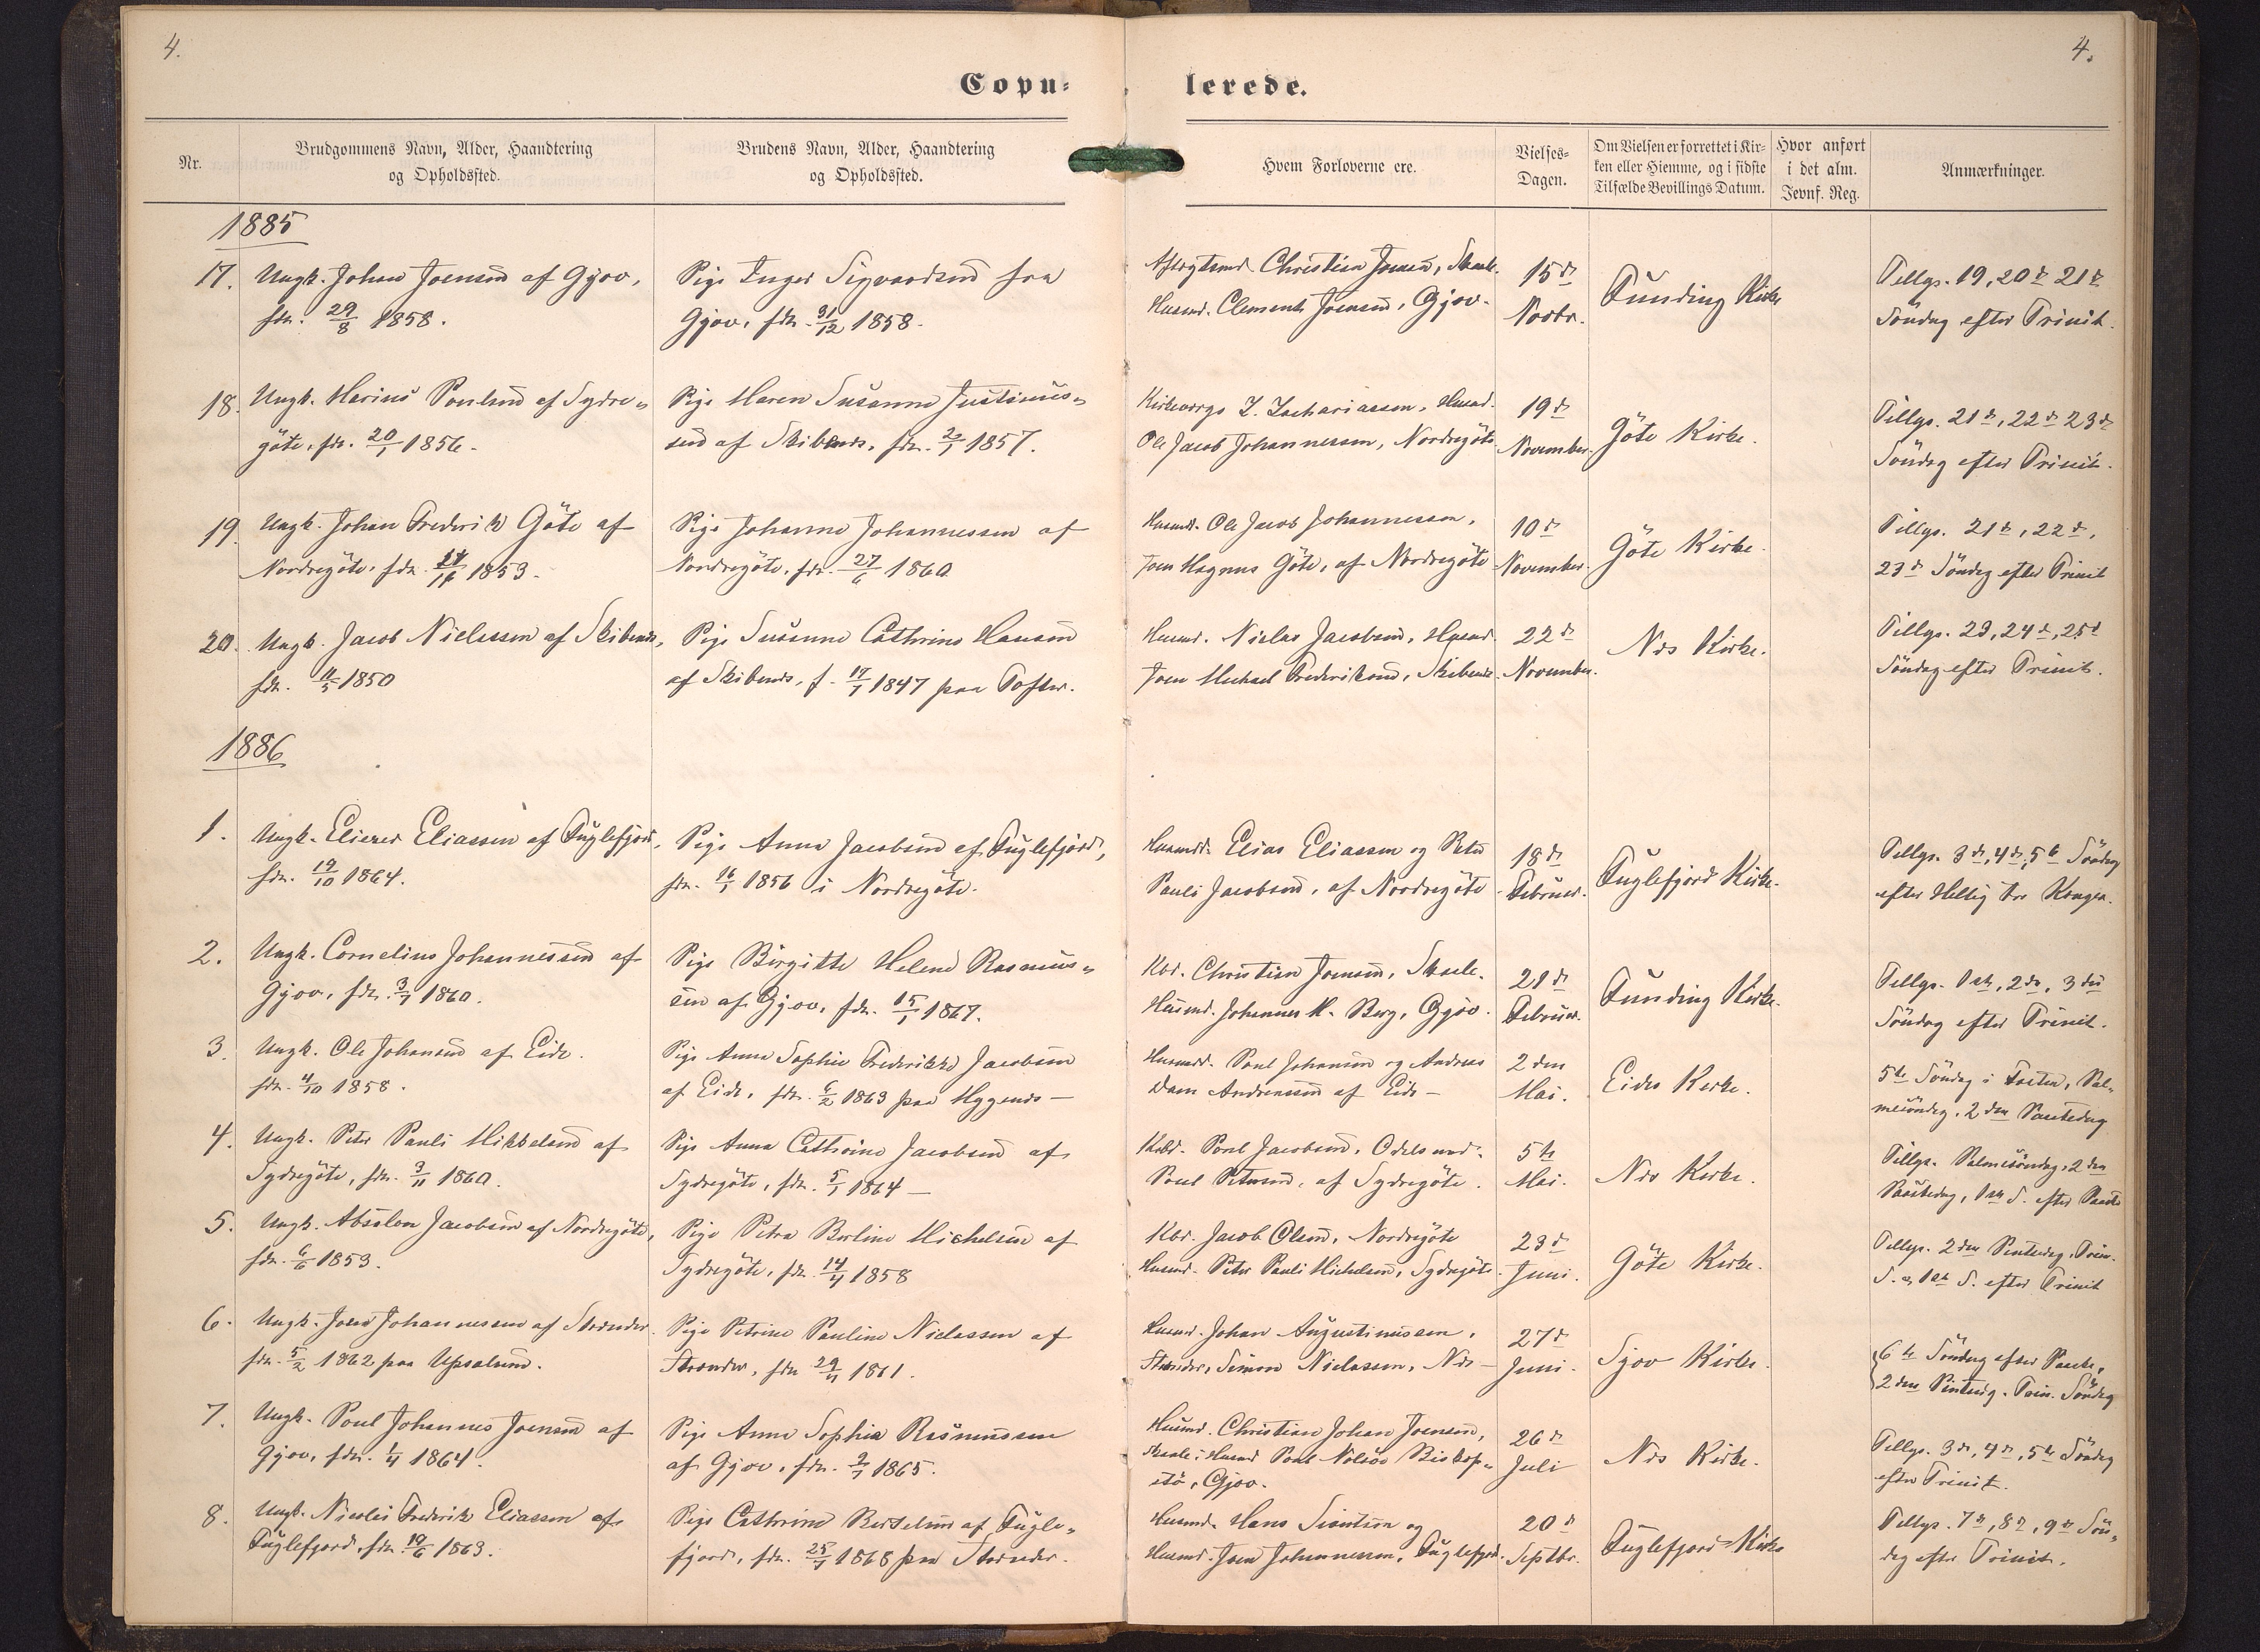 4.
4.
Copu-
lerede.
Nr.
Brudgommens Navn, Alder, Haandtering
og Opholdssted.
Brudens Navn, Alder, Haandtering
og Opholdssted.
Hvem Forloverne ere.
Vielses-
Dagen.
Om Vielsen er forrettet i Kir-
ken eller Hjemme, og i sidste
Tilfælde Bevillings Datum.
Hvor anført
i det alm.
Jevnf. Reg.
Anmærkninger.
1885
17.
Ungk. Johan Joensen af Gjov,
fdt. 29/8 1858.
Pige Inger Sigvardsen fra
Gjov, fdt. 31/12 1858.
Aftægtsmd. Christian Joensen, Skaale.
Husmd. Clement Joensen, Gjov.
15de
Novbr.
Funding Kirke
Tillys. 19, 20de 21de
Söndag efter Trinit.
18.
Ungk. Marius Poulsen af Sydre-
göte, fdt. 20/1 1856.
Pige Maren Susanne Justinus-
sen af Skibenæs, fdt. 2/1 1857.
Kirkeværge Z. Zachariassen, Husmd.
Ole Jacob Johannessen, Nordregöte
19de
November.
Göte Kirke.
Tillys. 21de, 22de 23de
Söndag efter Trinit.
19.
Ungk. Johan Frederik Göte af
Nordregöte, fdt. 1853.
Pige Johanne Johannessen af
Nordregöte, fdt. 27/6 1860
Husmd. Ole Jacob Johannessen,
Joen Magnus Göte, af Nordregöte
10de
November.
Göte Kirke.
Tillys. 21de, 22de,
23de Söndag efter Trinit
20.
Ungk. Jacob Nielassen af Skibenæs,
fdt. 11/5 1850
Pige Susanne Cathrine Hansen
af Skibenæs, f. 17/1 1847 paa Tofter.
Husmd. Niclas Jacobsen, Husmd.
Joen Michael Frederiksen, Skibenæs.
22de
November.
Næs Kirke.
Tillys. 23, 24de, 25de
Söndag efter Trinit.
1886
1.
Ungk. Eliezer Eliassen af Fuglefjord,
fdt. 19/10 1864.
Pige Anna Jacobsen af Fuglefjord,
fdt. 16/1 1856 i Nordregöte.
Husmdd. Elias Eliassen og Peter
Pauli Jacobsen, af Nordregöte
18de
Februar.
Fuglefjord Kirke.
Tillys. 3de, 4de, 5te Söndag
efter Hellig tre Konger.
2.
Ungk. Cornelius Johannessen af
Gjov, fdt. 3/1 1860.
Pige Birgitte Helene Rasmus-
sen af Gjov, fdt. 15/1 1867.
Kbd. Christian Joensen, Skaale.
Husmd. Johannes M. Berg, Gjov.
21de
Februar.
Funding Kirke.
Tillys. 1ste, 2den, 3die
Söndag efter Trinit.
3.
Ungk. Ole Johansen af Eide.
fdt. 4/10 1858.
Pige Anna Sophie Frederikke Jacobsen
af Eide, fdt. 6/2 1863 paa Myggenæs —
Husmdd. Poul Johansen og Andreas
Dam Andreasen af Eide —
2den
Mai.
Eides Kirke.
5te Söndag i Fasten, Pal-
mesöndag, 2den Paaskedag
4.
Ungk. Peter Pauli Mikkelsen af
Sydregöte, fdt. 3/11 1860.
Pige Anna Cathrine Jacobsen af
Sydregöte, fdt. 5/1 1864 —
Kbd. Poul Jacobsen, Odelsmd.
Poul Petersen, af Sydregöte.
5te
Mai.
Næs Kirke.
Tillys. Palmesöndag, 2den
Paaskedag, 1ste S. efter Paaske
5.
Ungk. Absalon Jacobsen af Nordregöte,
fdt. 6/6 1853.
Pige Petra Berline Michelsen af
Sydregöte, fdt. 14/4 1858
Kbd. Jacob Olsen, Nordregöte
Husmd. Peter Pauli Michelsen, Sydregöte.
23de
Juni.
Göte Kirke.
Tillys. 2den Pintsedag, Trin.
S. og 1ste S. efter Trinit
6.
Ungk. Johannessen af Strænder.
fdt. 5/2 1862 paa
Pige Petrine Pauline Nielassen af
Strænder, fdt. 1861.
Husmd. Johan Augustinussen,
Strænder, Simon Niclassen, Næs —
27de
Juni.
Sjov Kirke.
6te Söndag efter Paaske,
2den Pintsedg. Trin. Söndag
7.
Ungk. Poul Johannes Joensen af
Gjov, fdt. 1/4 1864.
Pige Anna Sophia Rasmussen
af Gjov, fdt. 2/1 1865.
Husmd. Christian Johan Joensen,
Skaale; Husmd Poul Nolsöe Biskop-
stö, Gjov.
26de
Juli
Næs Kirke.
Tillys. 3de, 4de, 5te Söndag
efter Trinit.
8.
Ungk. Nicolai Frederik Eliassen af
Fuglefjord, fdt. 19/6 1863.
Pige Cathrine Bertelsen af Fugle-
fjord, fdt. 1868 paa Strænder.
Husmd. Hans og
Husmd. Joen Johannessen, Fuglefjord.
20de
Septbr.
Fuglefjord Kirke
Tillys. 7de, 8de, 9de Sön-
dag efter Trinit.